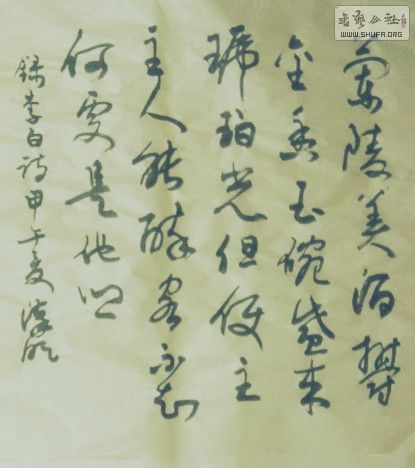 蘭陵美酒鬱
金香玉碗盛来
琥珀光但使主
主人能醉客不知
何處是他乡
録李白诗甲午夏
书艺公社
WWW.SHUFA.ORG